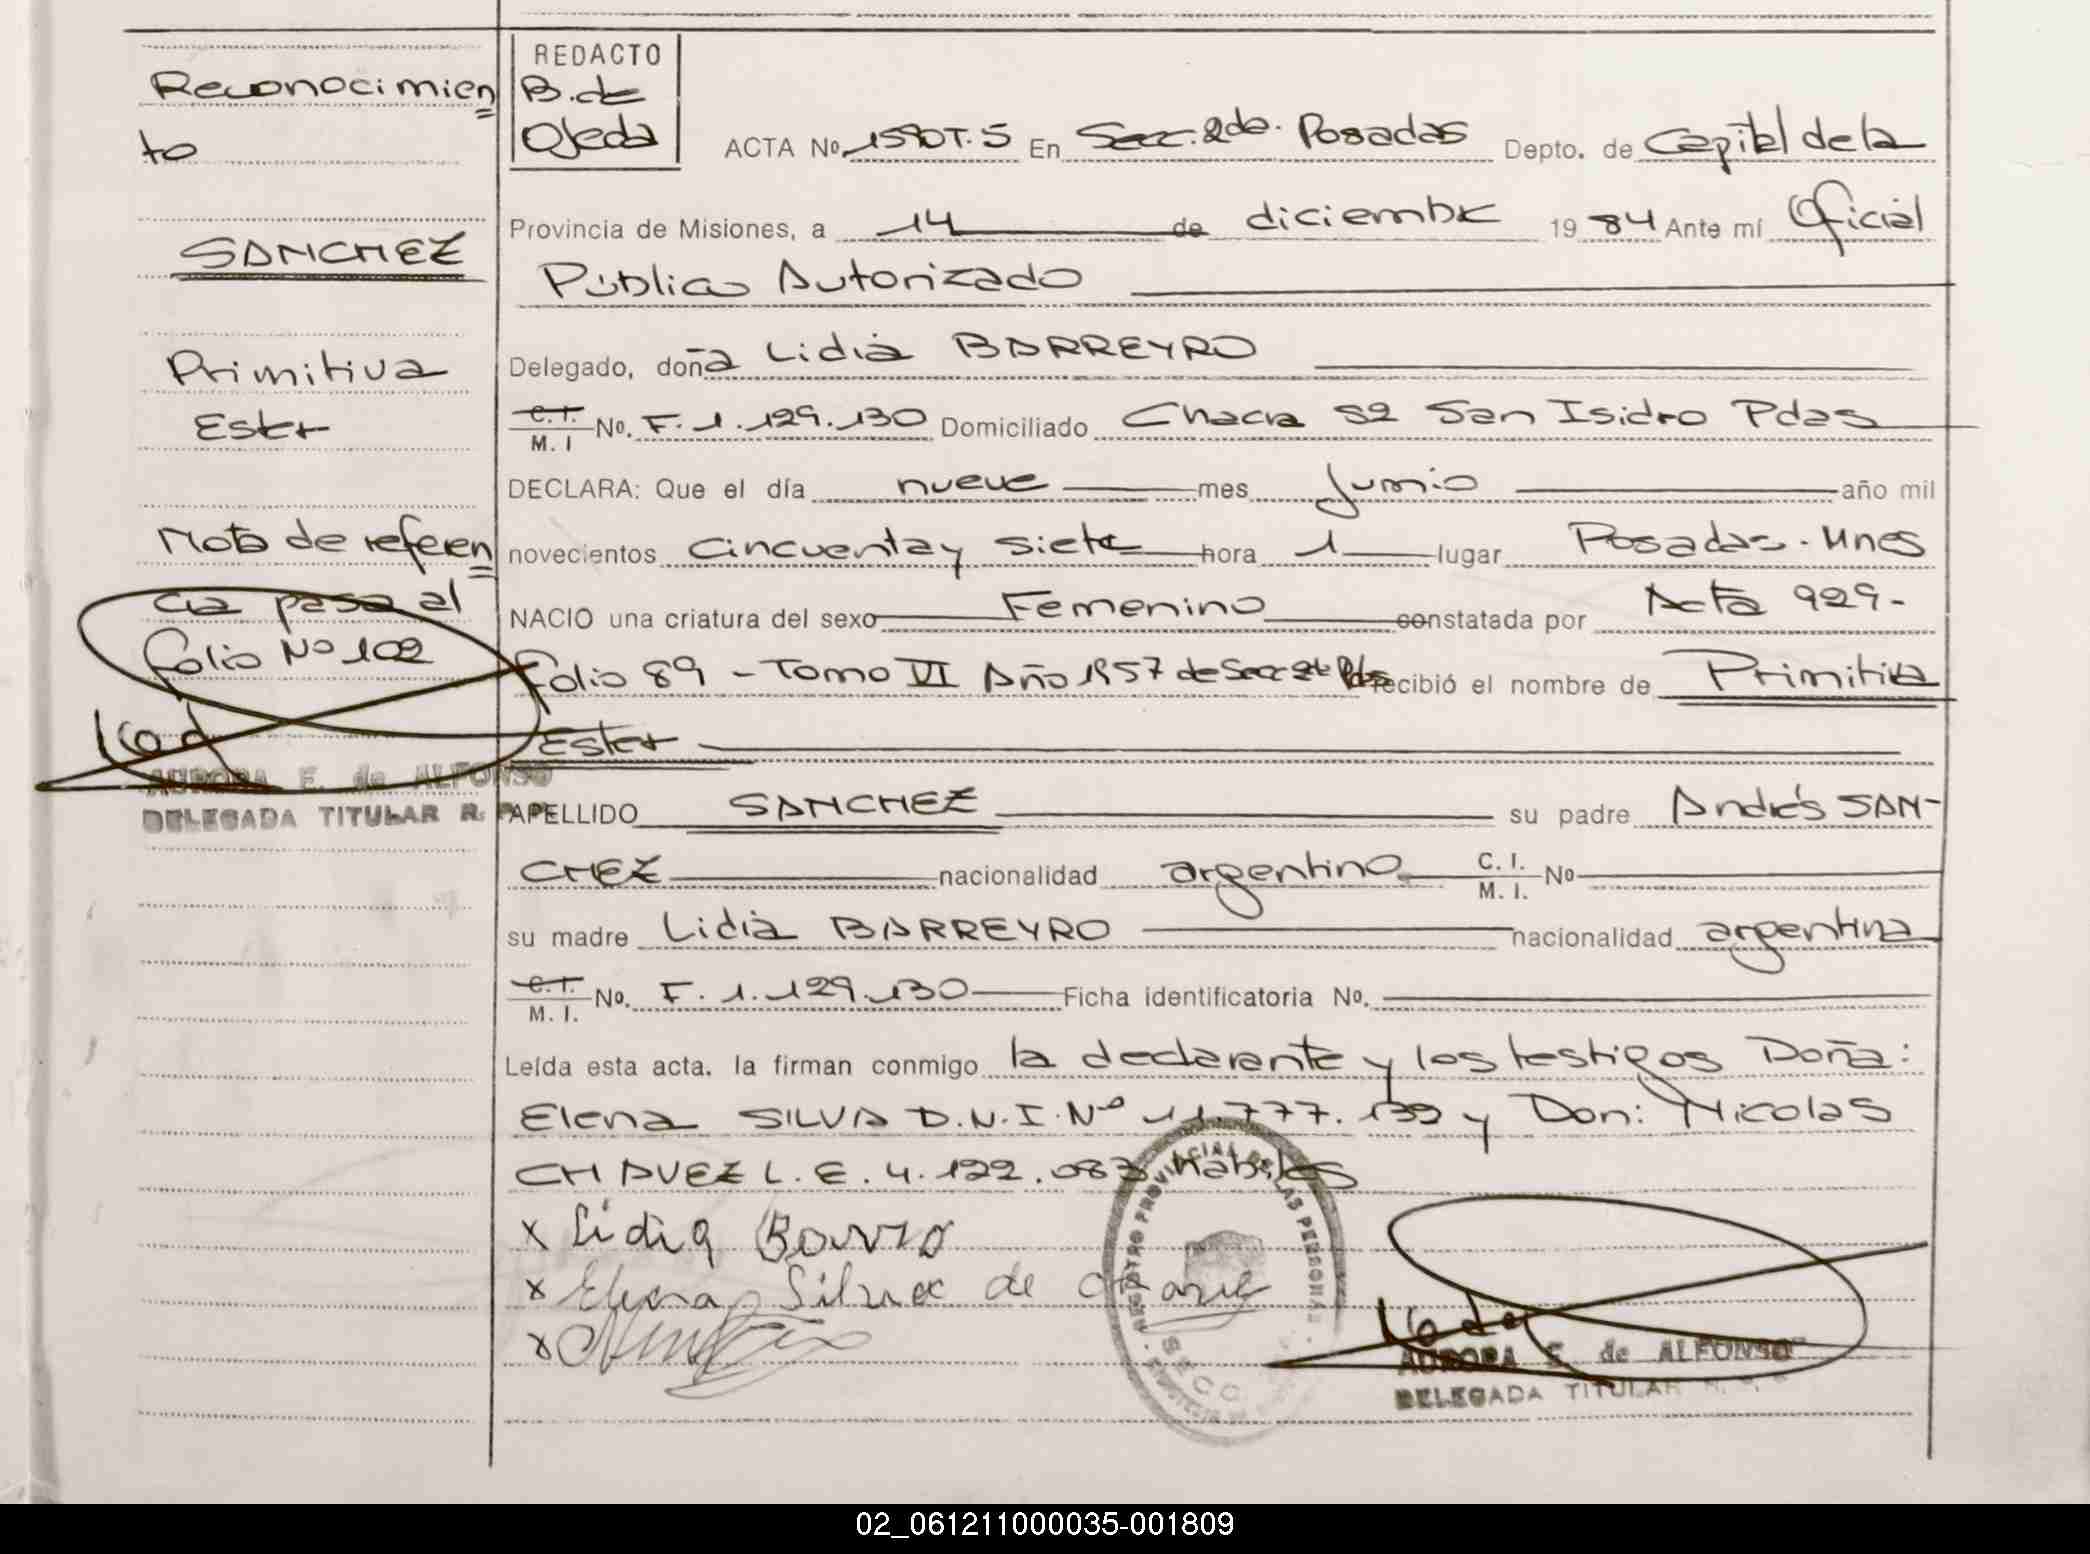 Reconocimien
to
SANCHEZ
Primitiva
Ester
Nota de referen
cia pasa al
folio Nº 102
AURORA E. de ALFONSO
DELEGADA TITULAR R. P. P.
REDACTO
B. de
Ojeda
ACTA Nº 1590 T. 5 En Secc. 2da. Posadas Depto. de Capital de la
Provincia de Misiones, a 14 de diciembre 1984 Ante mí Oficial
Público Autorizado
Delegado, doña Lidia BARREYRO
C. I. / M. I No. F. 1.129.130 Domiciliado Chacra 52 San Isidro Pdas
DECLARA: Que el día nueve mes Junio año mil
novecientos cincuenta y siete hora 1 lugar Posadas - Mnes
NACIO una criatura del sexo Femenino constatada por Acta 929-
folio 89 - Tomo VI Año 1957 de Secc 2da Pdas recibió el nombre de Primitiva
Ester
APELLIDO SANCHEZ su padre Andrés SAN-
CHEZ nacionalidad argentino C. I. / M. I. No
su madre Lidia BARREYRO nacionalidad argentina
C. I. / M. I. No. F. 1.129.130 Ficha identificatoria No.
Leída esta acta, la firman conmigo la declarante y los testigos Doña:
Elena SILVA D.N.I. Nº 11.777.139 y Don: Nicolas
CHAVEZ L. E. 4.122.083 habiles
x Lidia
x Elena Silva de
x
REGISTRO PROVINCIAL DE LAS PERSONAS
SECC
AURORA E. de ALFONSO
DELEGADA TITULAR R. P. P.
02_061211000035-001809